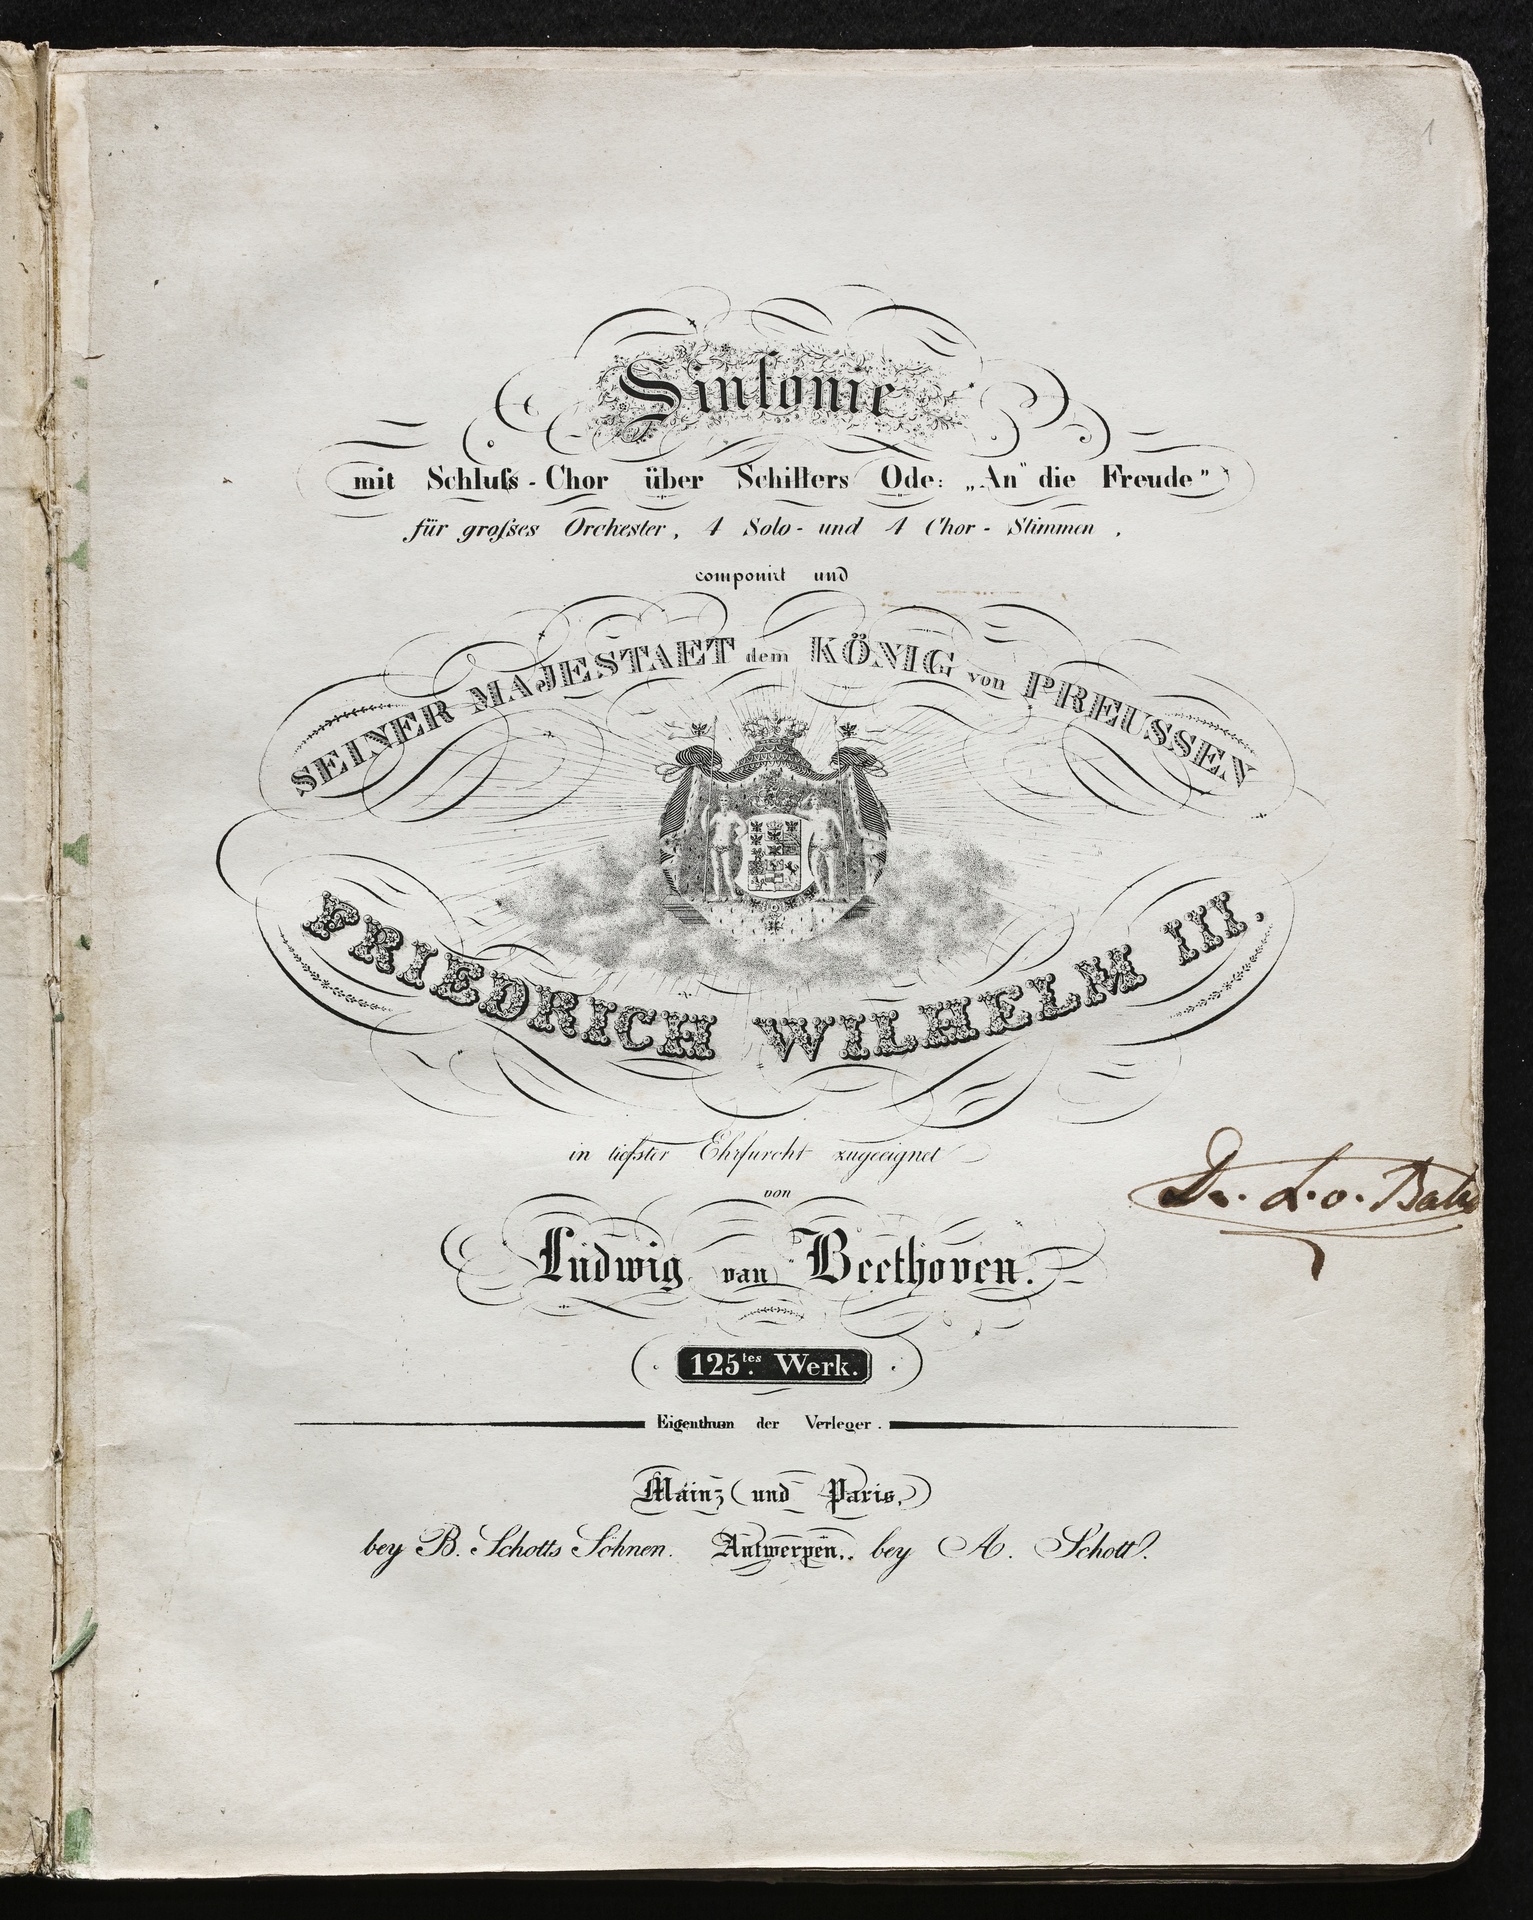 1
Sinfonie
mit Schluſs-Chor über Schillers Ode: „An" die Freude"
für groſses Orchester, 4 Solo- und 4 Chor-Stimmen,
componirt und
SEINER MAJESTAET dem KÖNIG von PREUSSEN
FRIEDRICH WILHELM III.
in tiefster Ehrfurcht zugeeignet
von
Ludwig van Beethoven.
Dr. L. v.
125tes. Werk.
Eigenthum der Verleger.
Mainz und Paris,
bey B. Schotts Söhnen. Antwerpen, bey A. Schott.